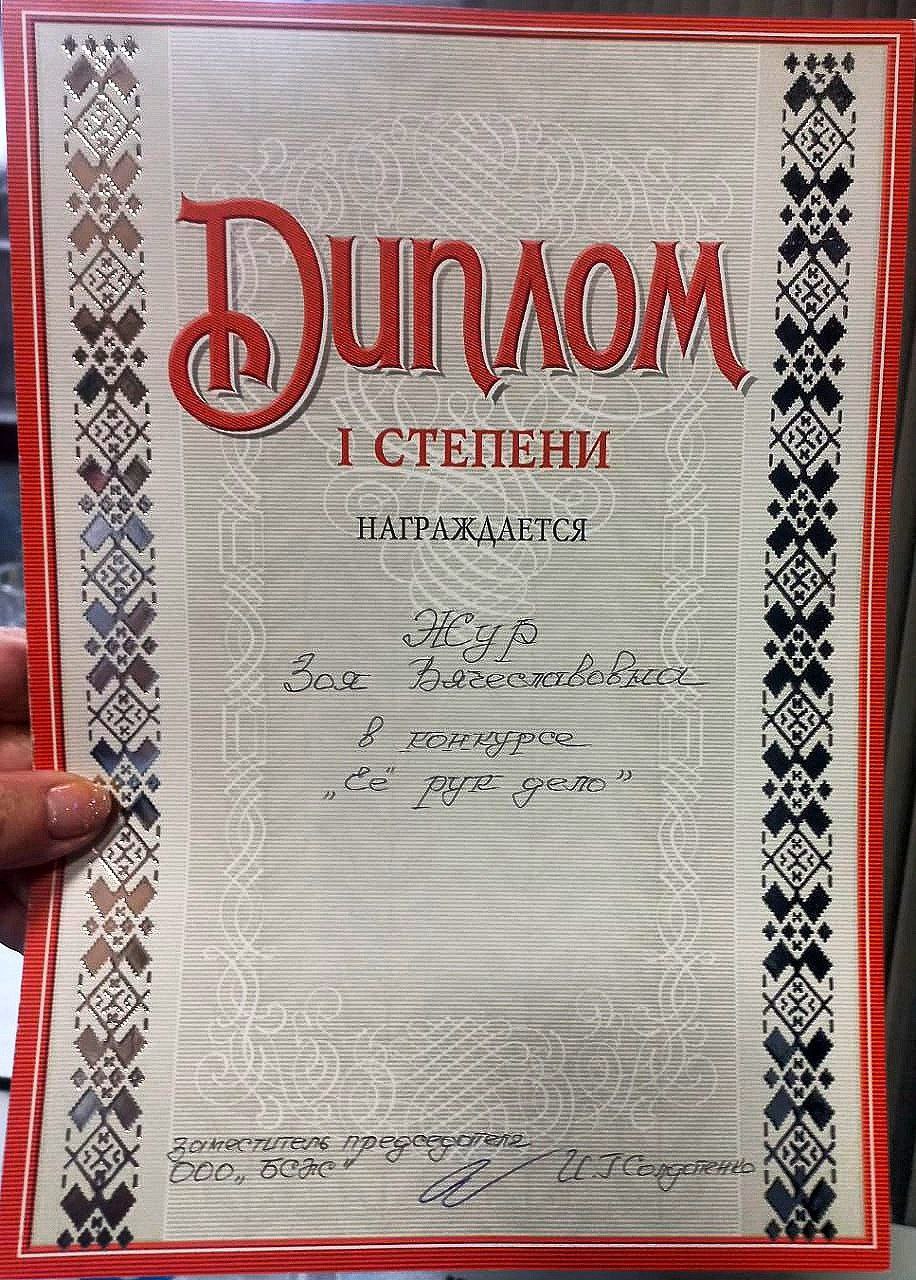 Диплом
I СТЕПЕНИ
НАГРАЖДАЕТСЯ
Жур
Зоя Вячеславовна
в конкурсе
„Её" рук дело"
заместитель председателя
ООО „БСЖ"
И.Г Солдатенко